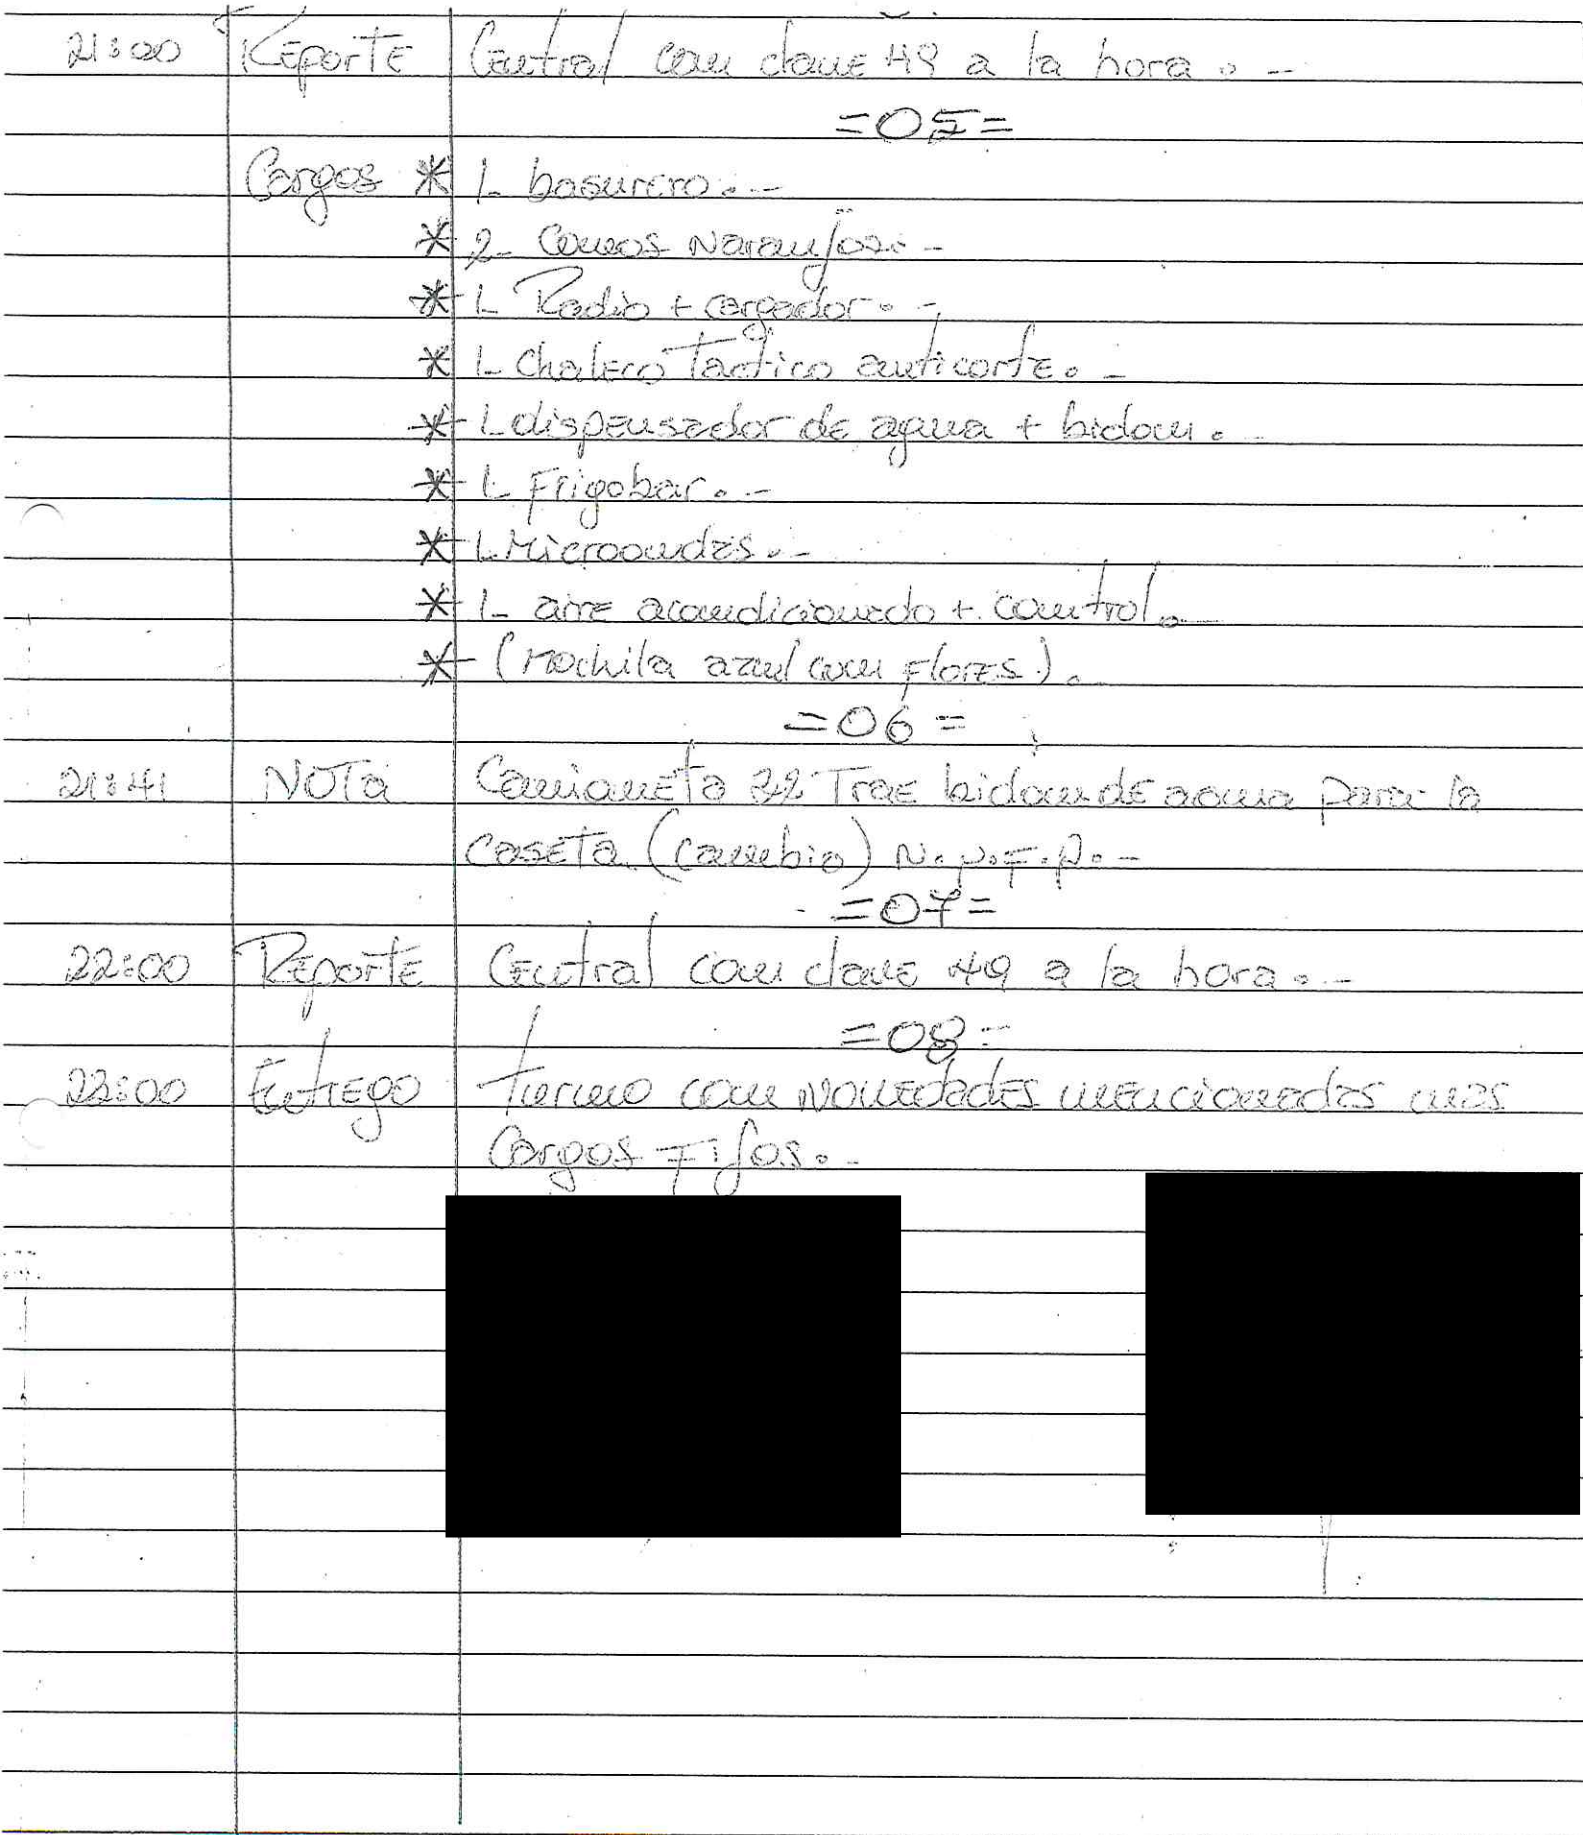 21:00 Reporte Central con clave 49 a la hora.-
=05=
Cargos * 1- basurero.-
* 2- Conos Naranjos.-
* 1- Radio + cargador.-
* 1- Chaleco Tactico anticorte.-
* 1- dispensador de agua + bidon.-
* 1- Frigobar.-
* 1- Microondas.-
* 1- aire acondicionado + control.-
* (Mochila azul con Flores).-
=06=
21:41 NOTa Camioneta 22 Trae bidon de agua para la
Caseta (cambio) N.N.F.P.-
=07=
22:00 Reporte Central con clave 49 a la hora.-
=08=
22:00 Entrego Turno con Novedades mencionadas mas
Cargos Fijos.-